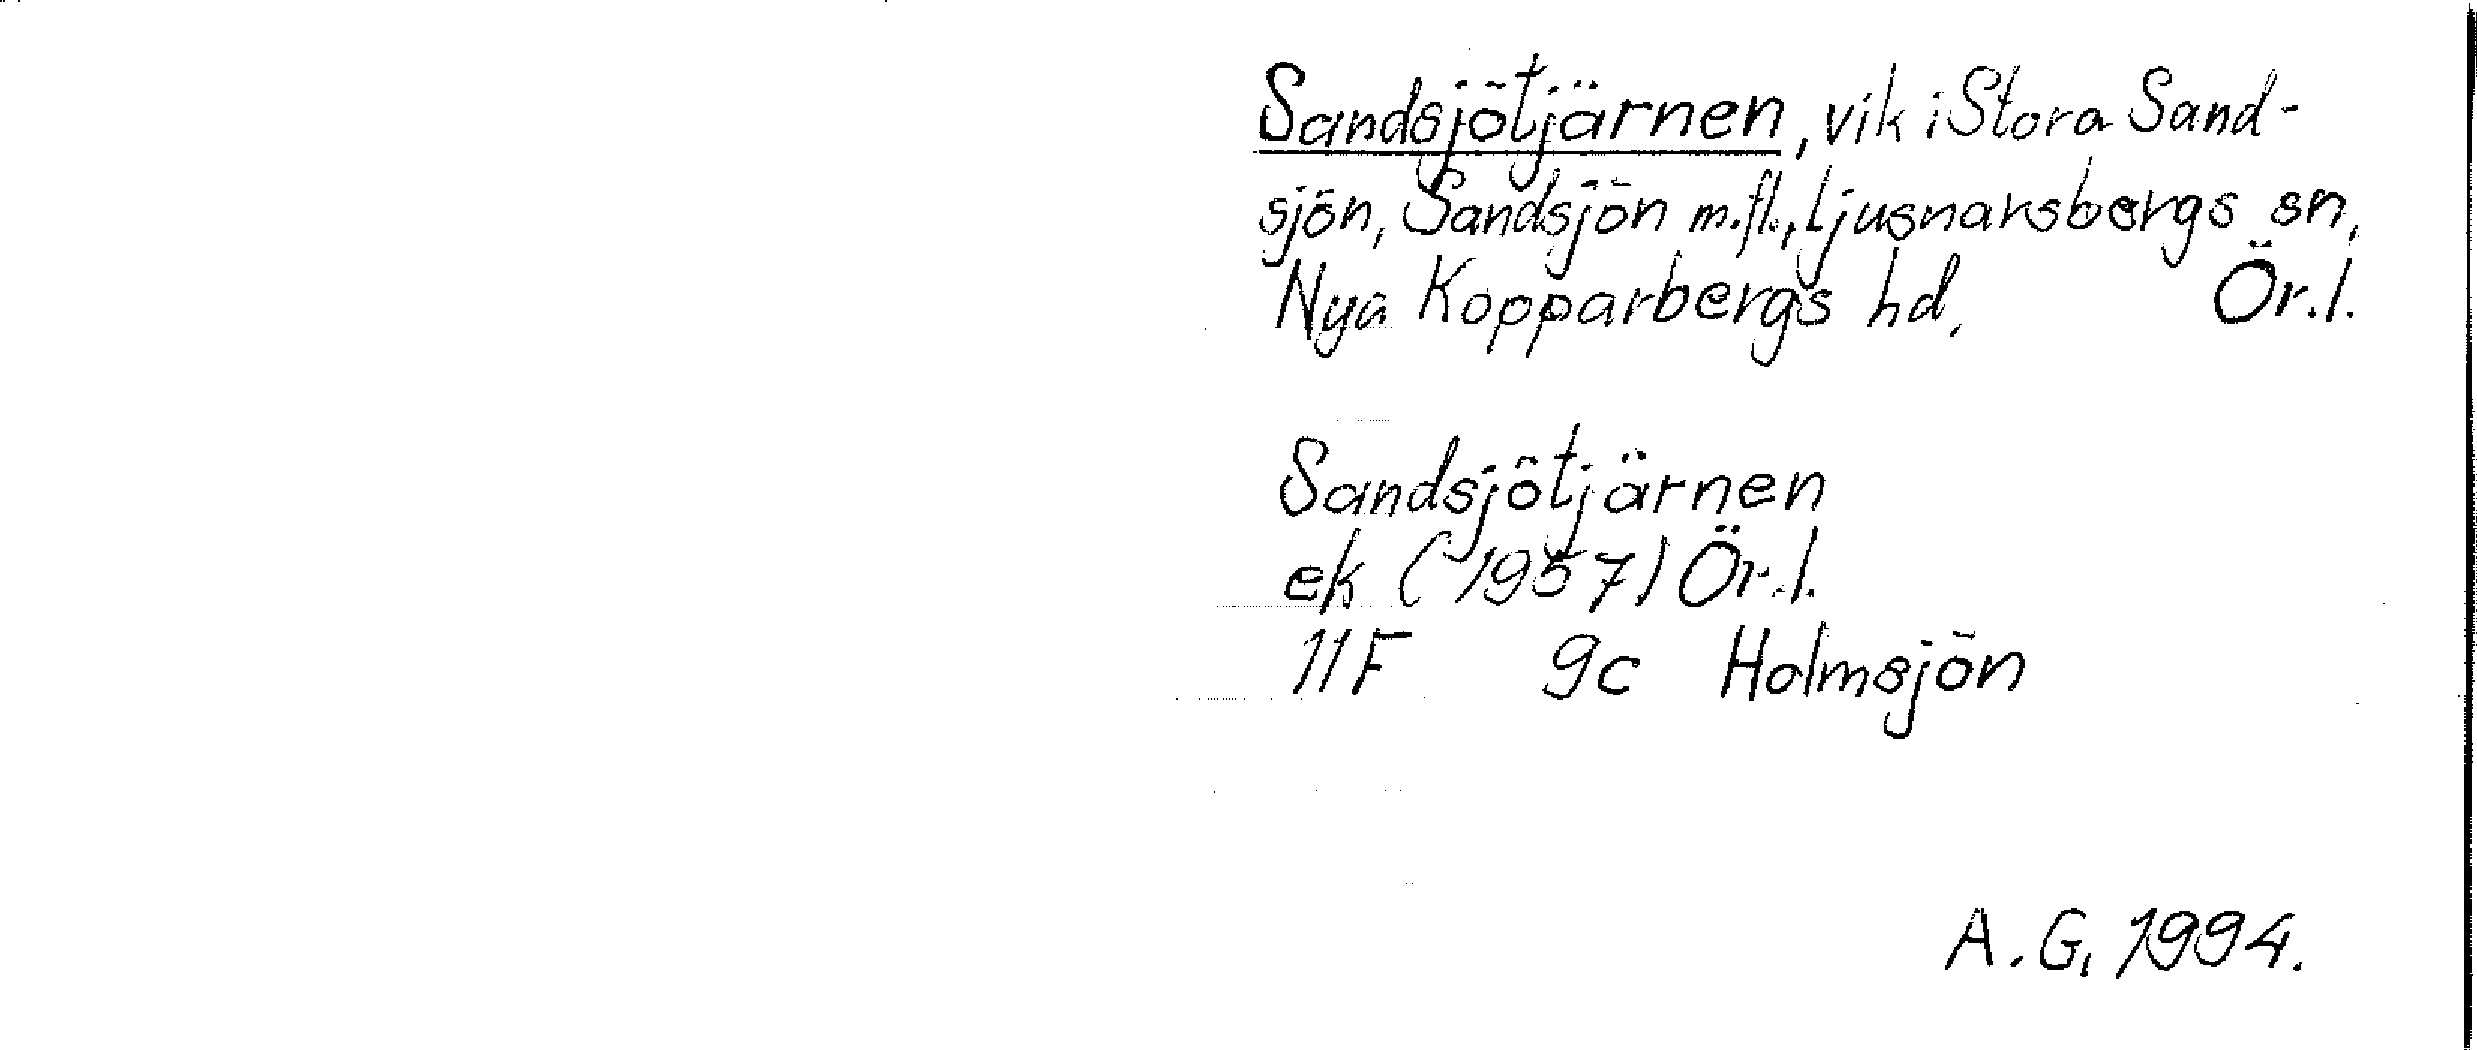 Sandsjötjärnen, vik i Stora Sand-
sjön, Sandsjön m.fl., Ljusnarsbergs sn,
Nya Kopparbergs hd, Ör.l.
Sandsjötjärnen
ek (1957) Ör.l.
11F 9c Holmsjön
A.G, 1994.